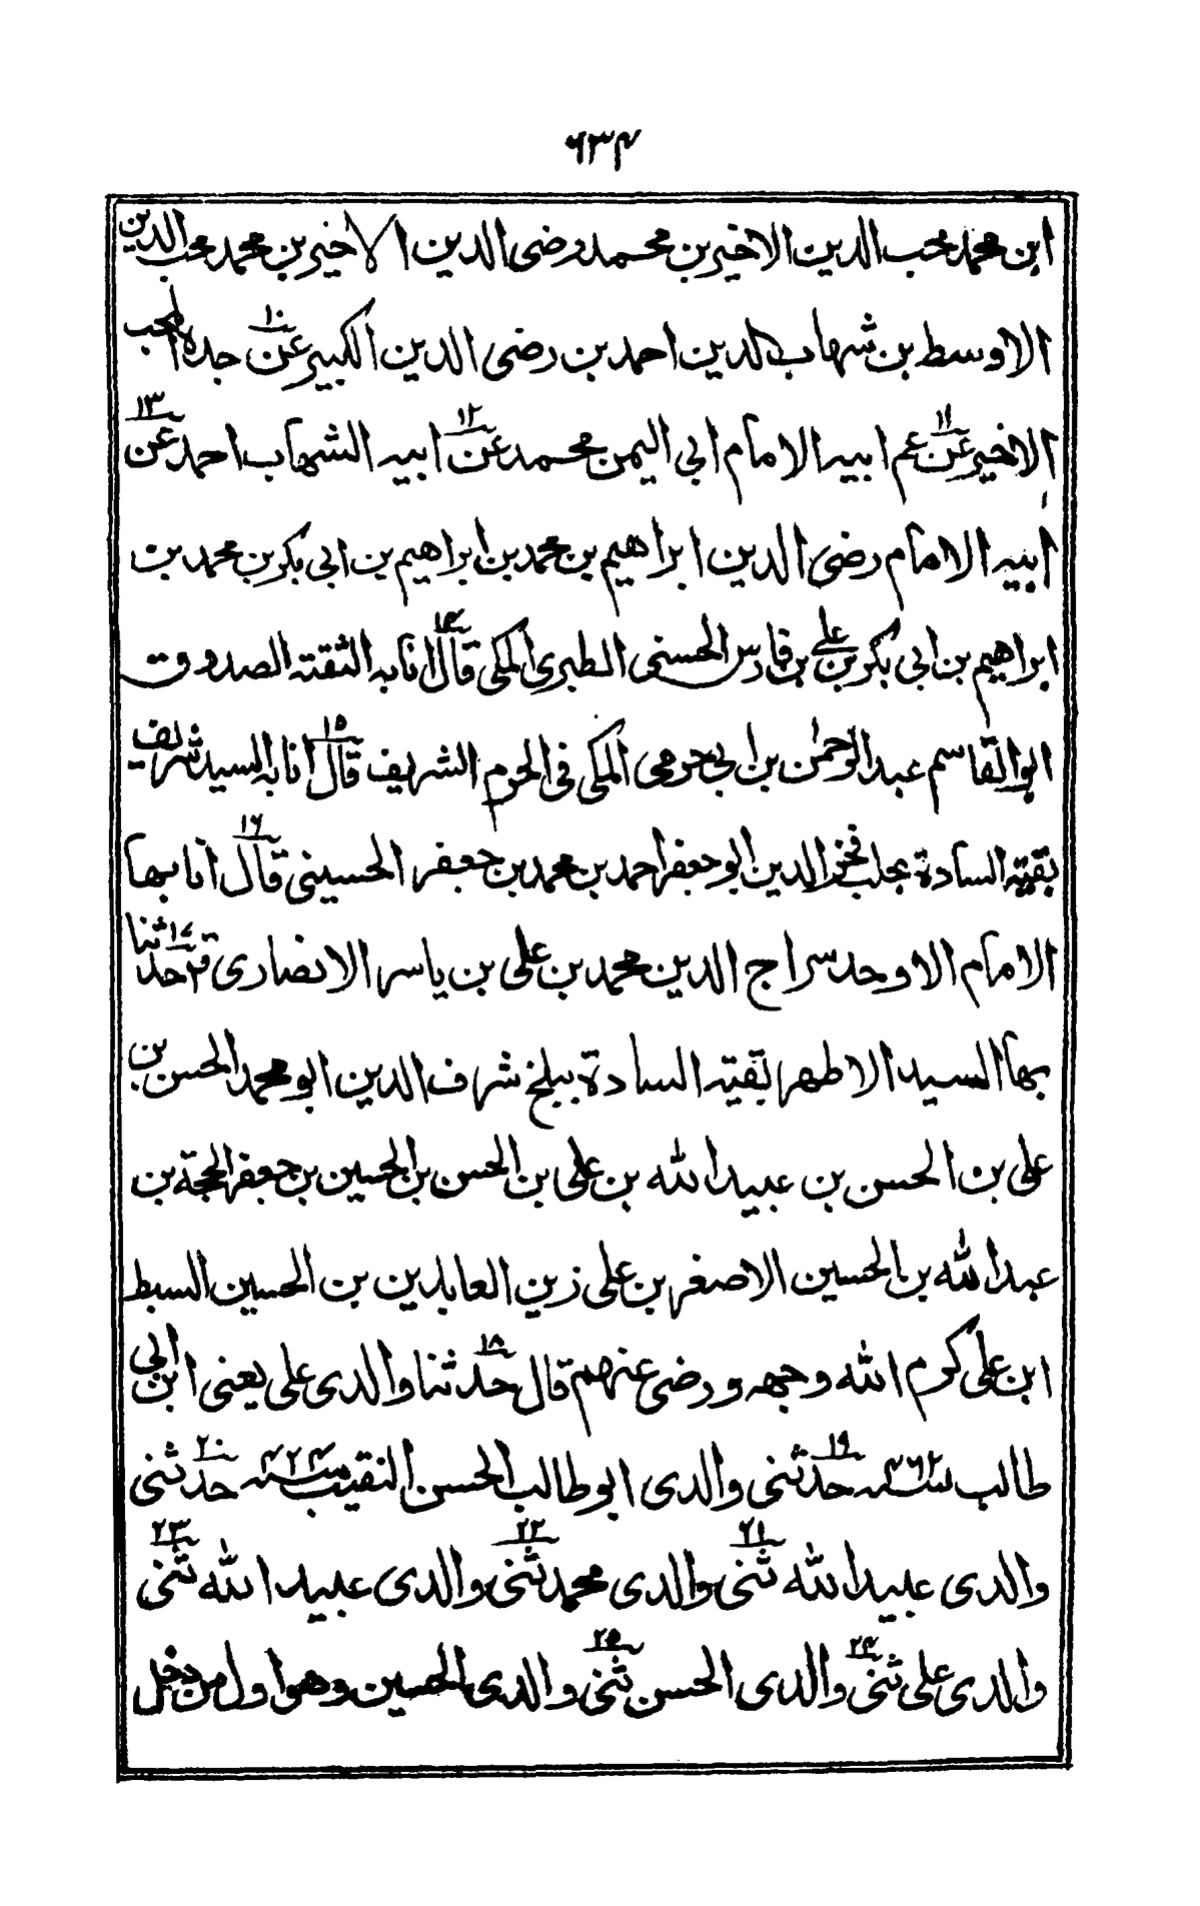 ۶۳۴
ابن محمد محب الدين الاخير بن محمد رضى الدين الاخير بن محمد محب الدين
الاوسط بن شهاب الدين احمد بن رضى الدين الكبير عن ١٠ جده المحب
الاخير عن ١١ عم ابيه الامام ابي اليمن محمد عن ١٢ ابيه الشهاب احمد عن ١٣
ابيه الامام رضى الدين ابراهيم بن محمد بن ابراهيم بن ابي بكر بن محمد بن
ابراهيم بن ابي بكر بن على بن فارس الحسنى الطبرى المكى قال ١٤ انا به الثقة الصدوق
ابو القاسم عبد الرحمن بن ابي حرمى المكى فى الحرم الشريف قال ١٥ انا به السيد شريف
بقية السادة بحلب فخر الدين ابو جعفر احمد بن محمد بن جعفر الحسينى قال ١٦ انا بها
الامام الاوحد سراج الدين محمد بن على بن ياسر الانصارى قال ١٧ حدثنا
بها السيد الاطهر بقية السادة ببلخ شرف الدين ابو محمد الحسن بن
على بن الحسن بن عبيد الله بن على بن الحسن بن الحسين بن جعفر الحجة بن
عبد الله بن الحسين الاصغر بن على زين العابدين بن الحسين السبط
ابن على كرم الله وجهه ورضى عنهم قال ١٨ حدثنا والدى على يعنى ابن ابي
طالب سنه ۴۶۲ ١٩ حدثنى والدى ابو طالب الحسن النقيب سنه ۴۳۴ ٢٠ حدثنى
والدى عبيد الله ٢١ ثنى والدى محمد ٢٢ ثنى والدى عبيد الله ٢٣ ثنى
والدى على ٢٤ ثنى والدى الحسن ٢٥ ثنى والدى الحسين وهو اول من دخل